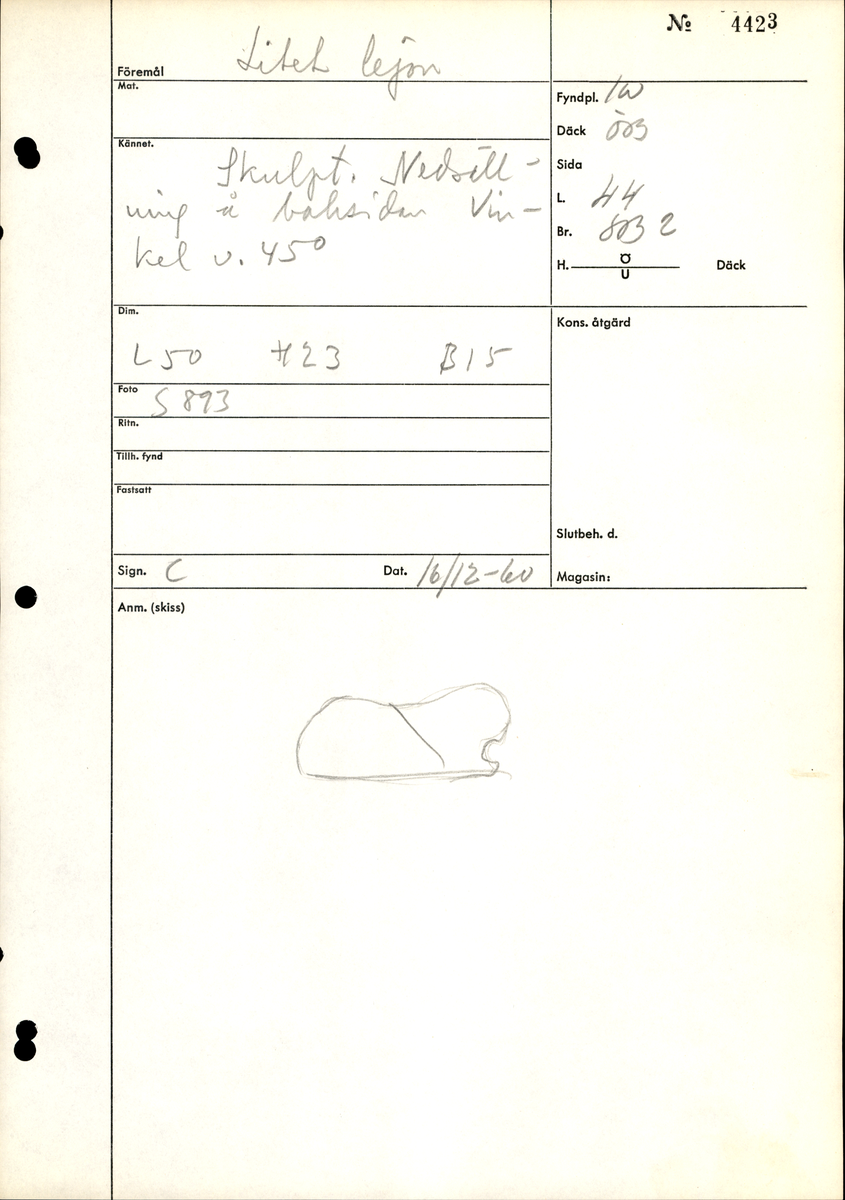 № 4423
Föremål Litet lejon
Mat.
Fyndpl. IW
Däck ÖB
Kännet. Skulpt. Nedsätt-
ning å baksidan Vin-
kel v. 45°
Sida
L. 44
Br. SB 2
H. Ö Däck
U
Dim.
L 50 H 23 B 15
Kons. åtgärd
Foto S 893
Ritn.
Tillh. fynd
Fastsatt
Slutbeh. d.
Sign. C Dat. 16/12-60
Magasin:
Anm. (skiss)